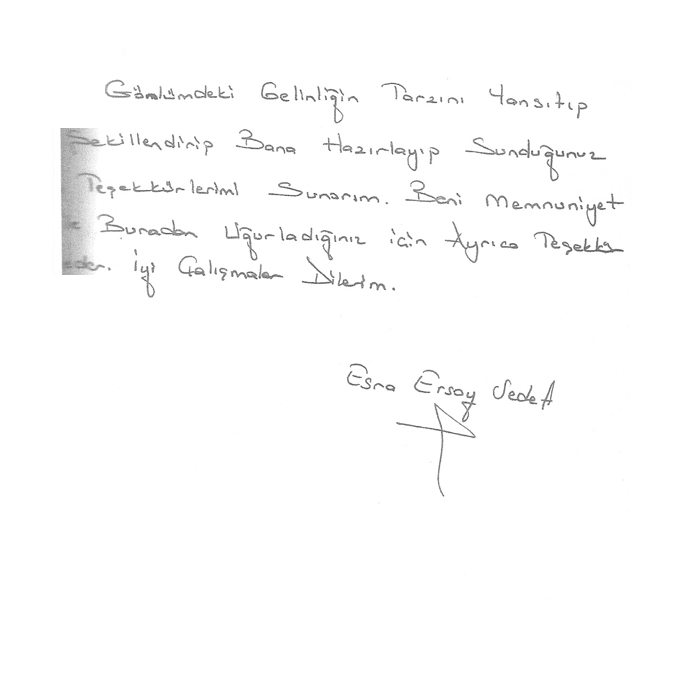 Gönlümdeki Gelinliğin Tarzını Yansıtıp
Şekillendirip Bana Hazırlayıp Sunduğunuz
Teşekkürlerimi Sunarım. Beni Memnuniyet
e Buradan Uğurladığınız için Ayrıca Teşekkür
eder. İyi Çalışmalar Dilerim.
Esra Ersoy Sedef